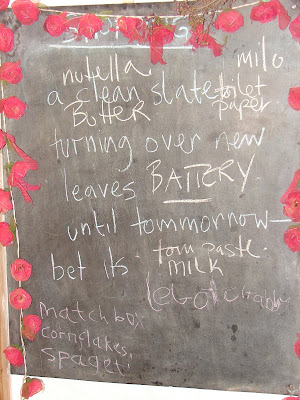 nutella milo
a clean slate toilet
Butter paper
turning over new
leaves BATTERY
until tommorrow
bet its tom paste
milk
matchbox
cornflakes.
spageti